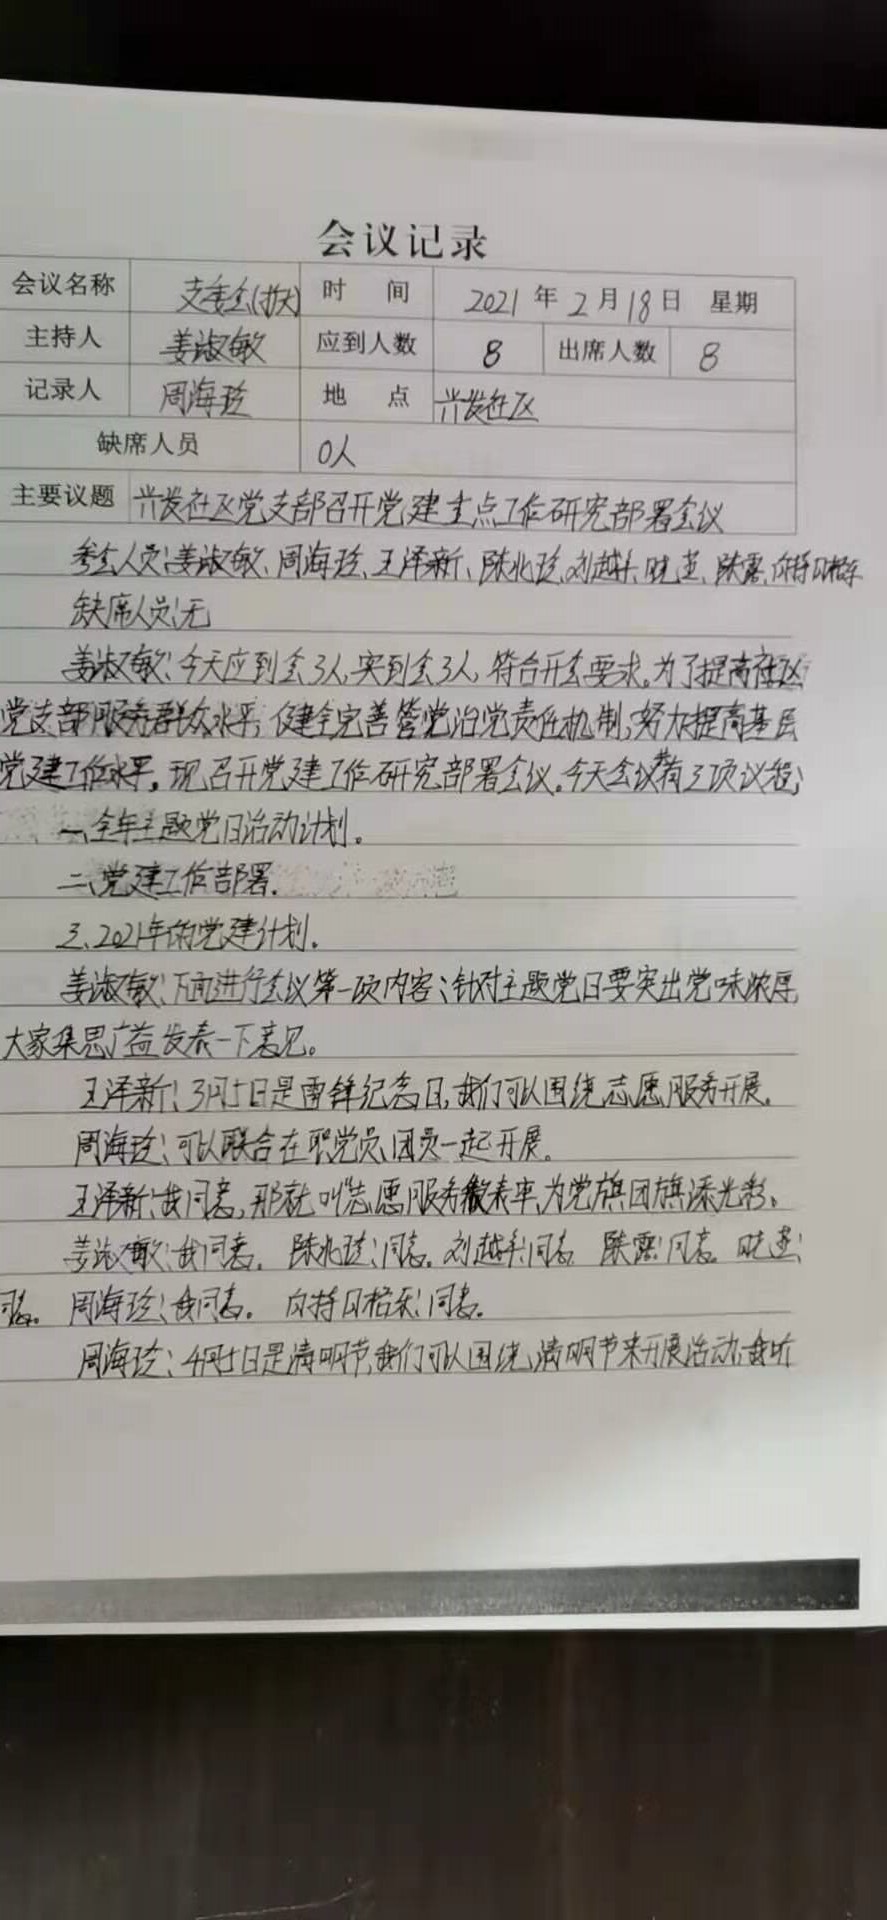 会议记录
会议名称 支委会(扩大) 时 间 2021 年 2 月 18 日 星期
主持人 姜淑敏 应到人数 8 出席人数 8
记录人 周海玲 地 点 兴发社区
缺席人员 0人
主要议题 兴发社区党支部召开党建重点工作研究部署会议
参会人员:姜淑敏、周海玲、王泽新、陈北玲、刘越、陈露、
缺席人员:无
姜淑敏:今天应到会3人,实到会3人,符合开会要求。为了提高社区
党支部服务群众水平,健全完善管党治党责任机制,努力提高基层
党建工作水平。现召开党建工作研究部署会议。今天会议共有三项议程:
一、全年主题党日活动计划。
二、党建工作部署.
三、2021年的党建计划.
姜淑敏:下面进行会议第一项内容:针对主题党日要突出党味浓厚,
大家集思广益发表一下意见。
王泽新:3月5日是雷锋纪念日,我们可以围绕志愿服务开展.
周海玲:可以联合在职党员、团员一起开展。
王泽新:我同意,那就叫"志愿服务做表率,为党旗团旗添光彩。
姜淑敏:我同意. 陈北玲:同意. 刘越:同意 陈露:同意
同意. 周海玲:我同意. 同意.
周海玲:4月5日是清明节,我们可以围绕清明节来开展活动,我听